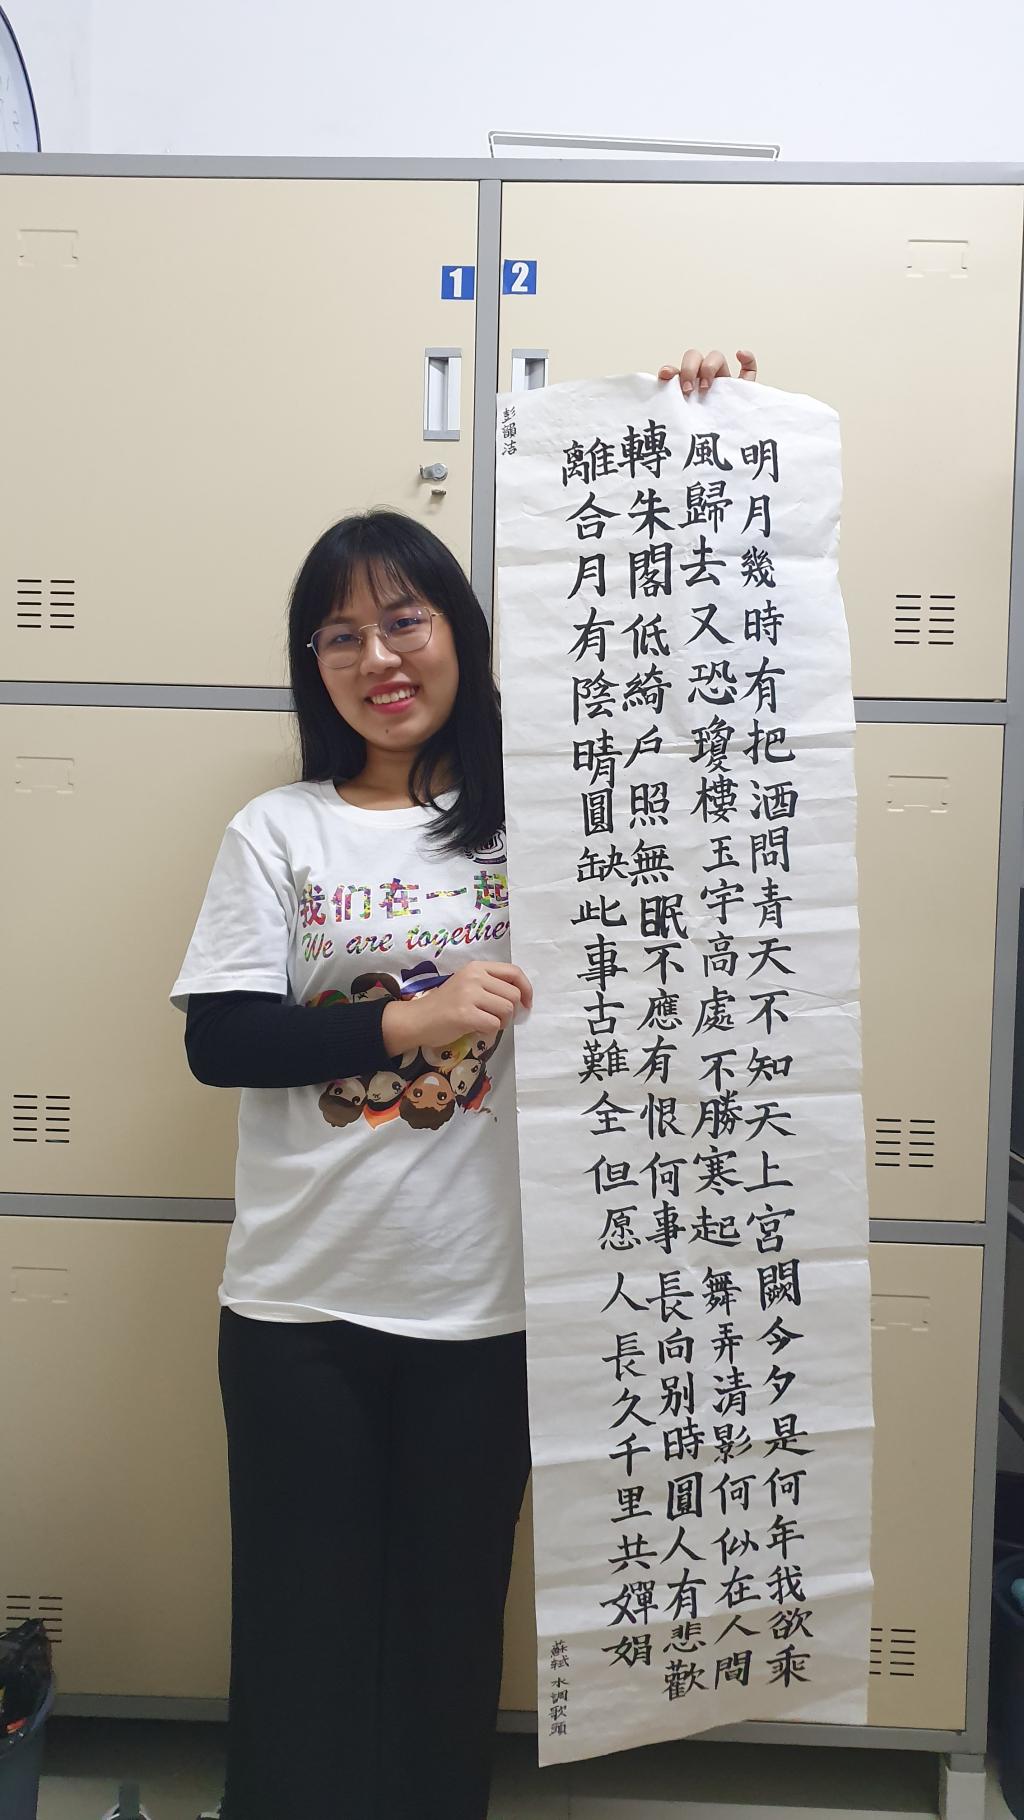 1
2
明月幾時有把酒問青天不知天上宮闕今夕是何年我欲乘
風歸去又恐瓊樓玉宇高處不勝寒起舞弄清影何似在人間
轉朱閣低綺户照無眠不應有恨何事長向别時圓人有悲歡
離合月有陰晴圓缺此事古難全但愿人長久千里共嬋娟
蘇軾 水調歌頭
彭韻洁
我们在一起
We are together